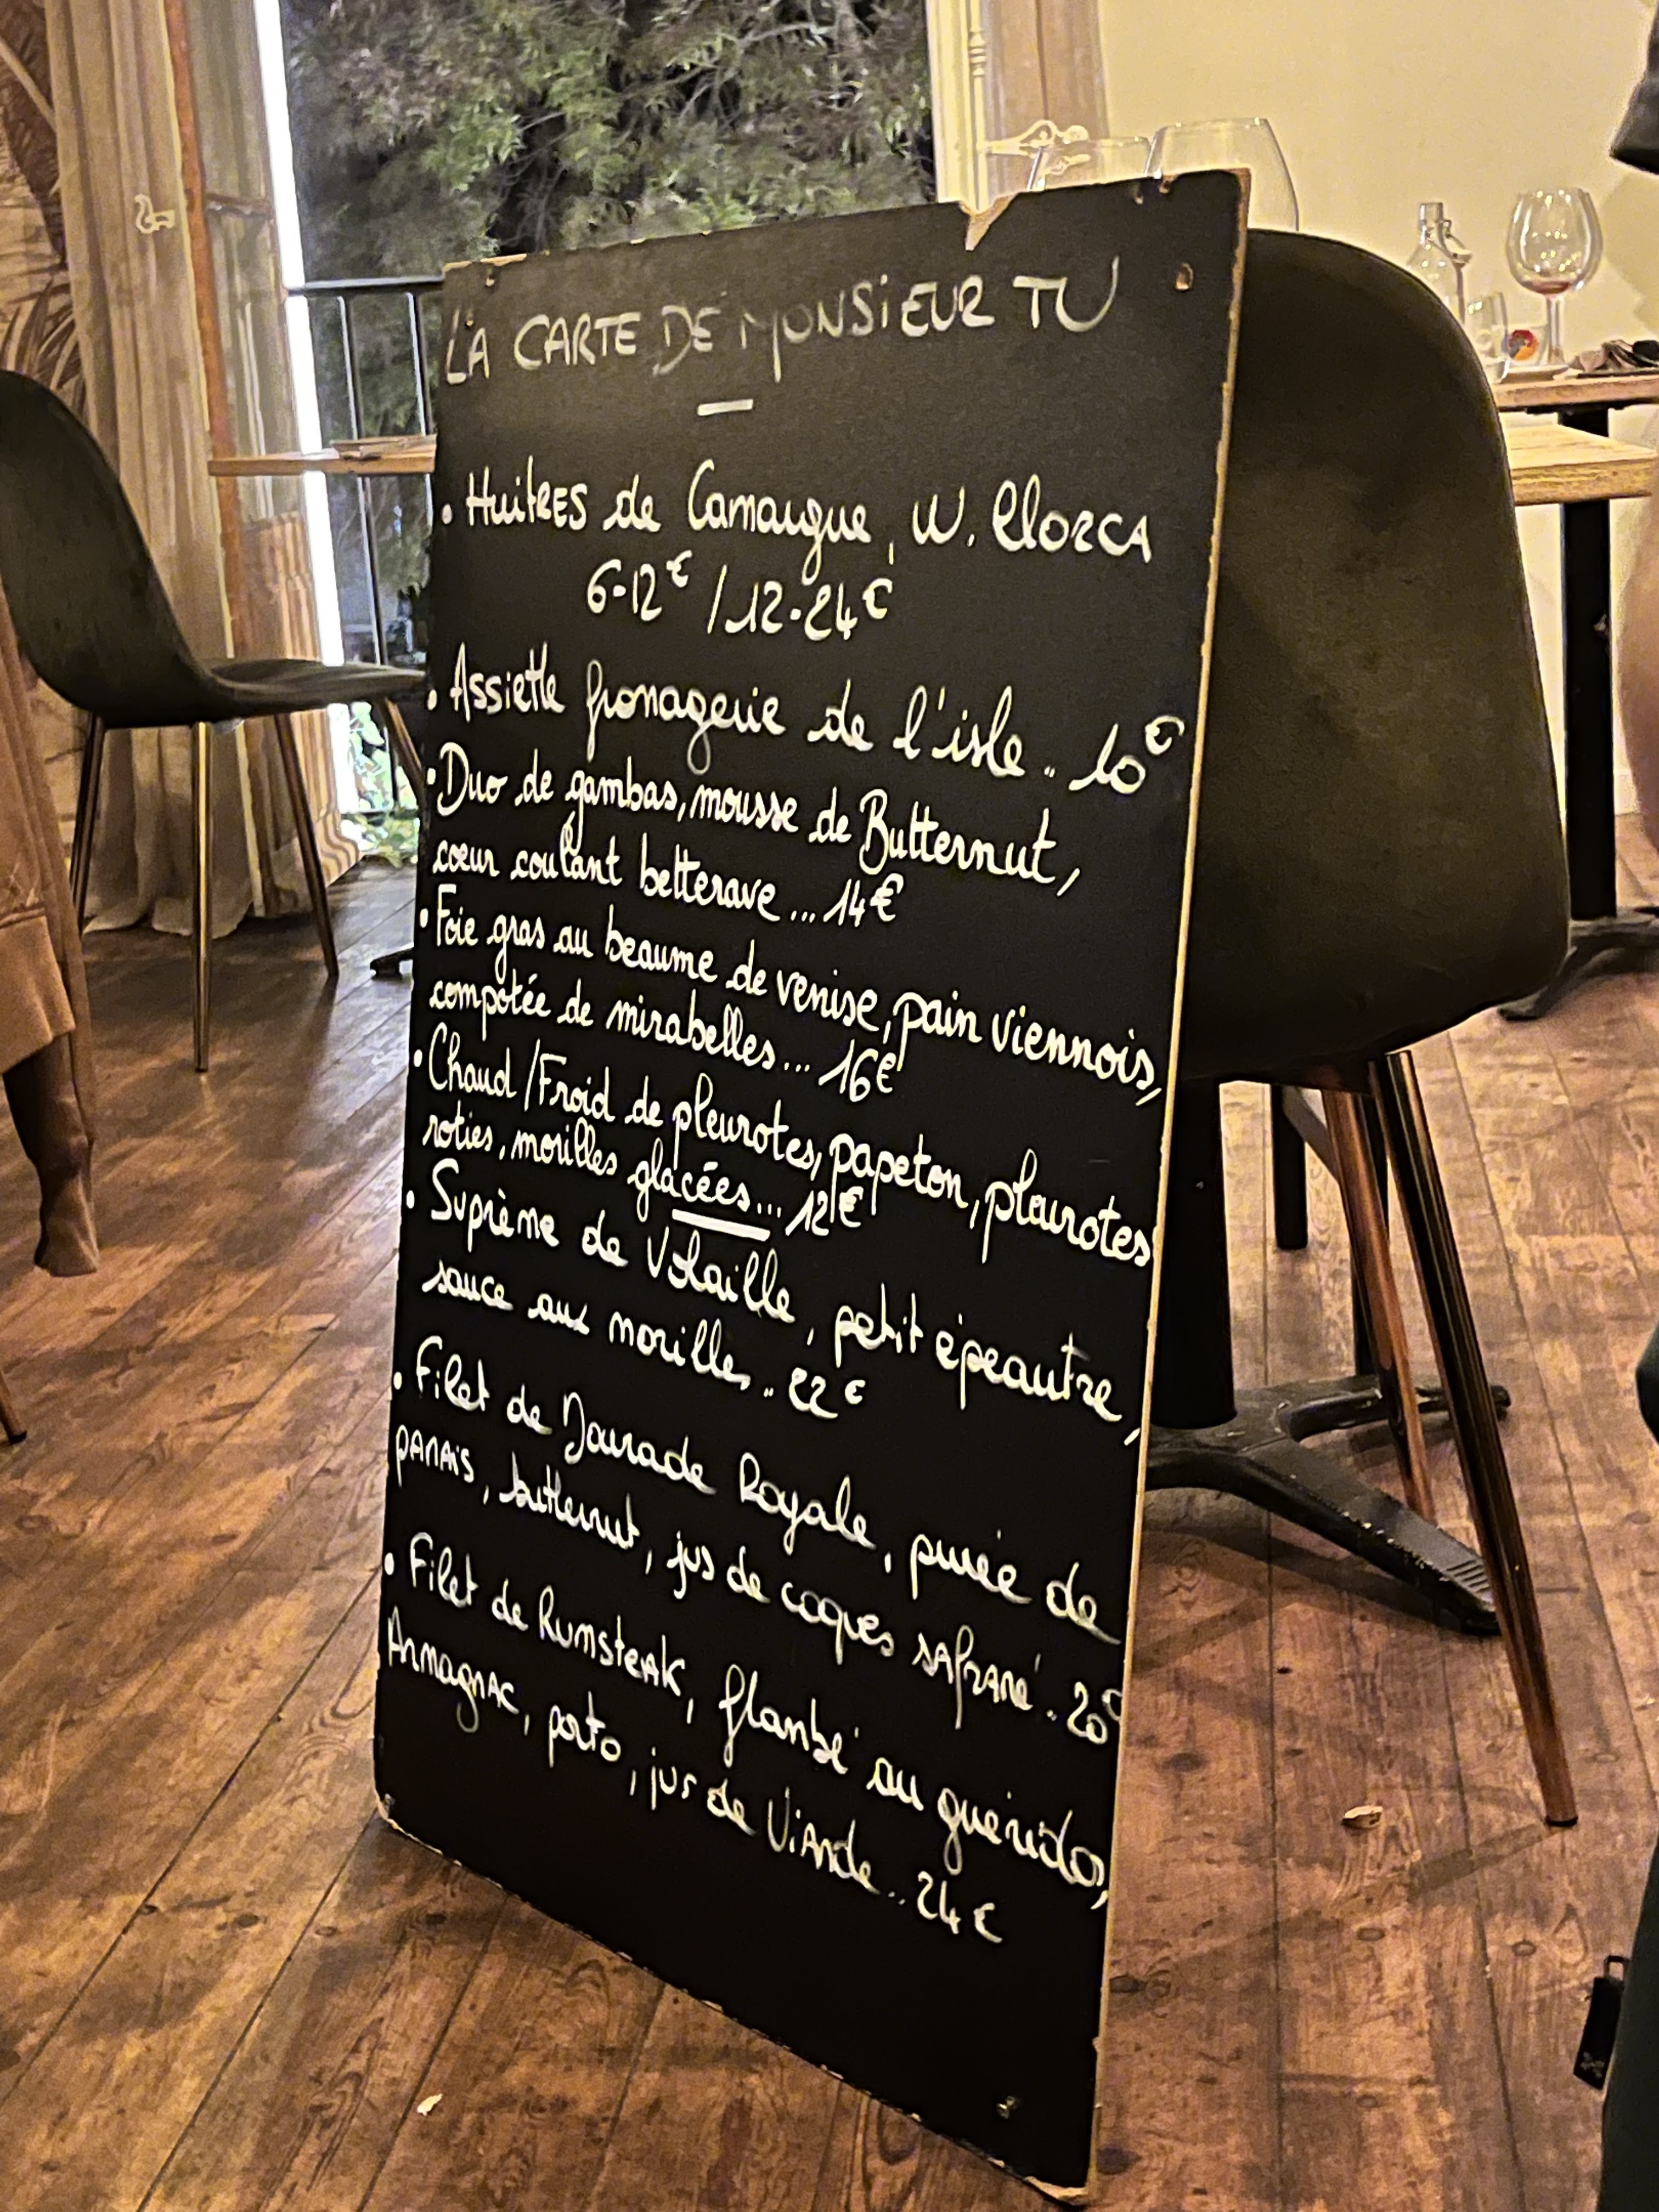 LA CARTE DE MONSIEUR TU
• Huitres de Camargue, W. LlORCA
6-12€ / 12-24€
• Assiette fromagerie de l'isle .. 10€
• Duo de gambas, mousse de Butternut,
coeur coulant betterave ... 14€
• Foie gras au beaume de venise, pain viennois,
compotée de mirabelles ... 16€
• Chaud / Froid de pleurotes, papeton, pleurotes
roties, morilles glacées ... 12€
• Suprème de Volaille, petit épeautre,
sauce aux morilles .. 22€
• Filet de Daurade Royale, purée de
panais, butternut, jus de coques safrané .. 20€
• Filet de Rumsteak, flambé au guéridon,
Armagnac, porto, jus de Viande .. 24€